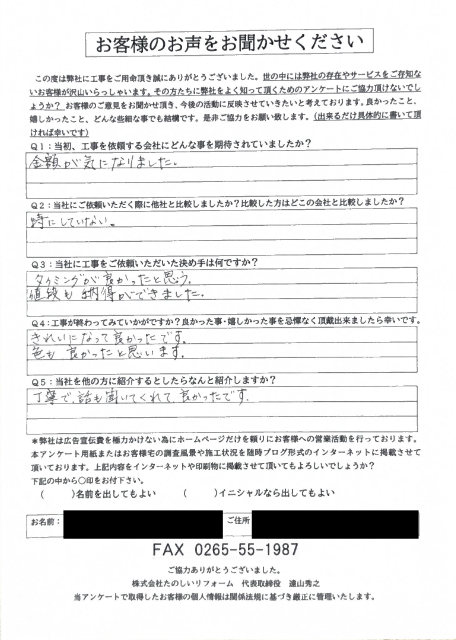 お客様のお声をお聞かせください
この度は弊社に工事をご用命頂き誠にありがとうございました。世の中には弊社の存在やサービスをご存知な
いお客様が沢山いらっしゃいます。その方たちに弊社をよく知って頂くためのアンケートにご協力頂けないでし
ょうか？お客様のご意見をお聞かせ頂き、今後の活動に反映させていきたいと考えております。良かったこと、
嬉しかったこと、どんな些細な事でも結構です。是非ご協力をお願い致します。(出来るだけ具体的に書いて頂
ければ幸いです)
Q1：当初、工事を依頼する会社にどんな事を期待されていましたか？
金額が気になりました。
Q2：当社にご依頼いただく際に他社と比較しましたか？比較した方はどこの会社と比較しましたか？
特にしていない。
Q3：当社に工事をご依頼いただいた決め手は何ですか？
タイミングが良かったと思う。
値段も納得ができました。
Q4：工事が終わってみていかがですか？良かった事・嬉しかった事を忌憚なく頂戴出来ましたら幸いです。
きれいになって良かったです。
色も良かったと思います。
Q5：当社を他の方に紹介するとしたらなんと紹介しますか？
丁寧で、話も聞いてくれて良かったです。
＊弊社は広告宣伝費を極力かけない為にホームページだけを頼りにお客様への営業活動を行っております。
本アンケート用紙またはお客様宅の調査風景や施工状況を随時ブログ形式のインターネットに掲載させて
頂いております。上記内容をインターネットや印刷物に掲載させて頂いてもよろしいでしょうか？
下記の中から〇印をお付下さい。
(　　)名前を出してもよい　　(　　)イニシャルなら出してもよい
お名前：　ご住所
FAX 0265-55-1987
ご協力ありがとうございました。
株式会社たのしいリフォーム　代表取締役　遠山秀之
当アンケートで取得したお客様の個人情報は関係法規に基づき厳正に管理いたします。